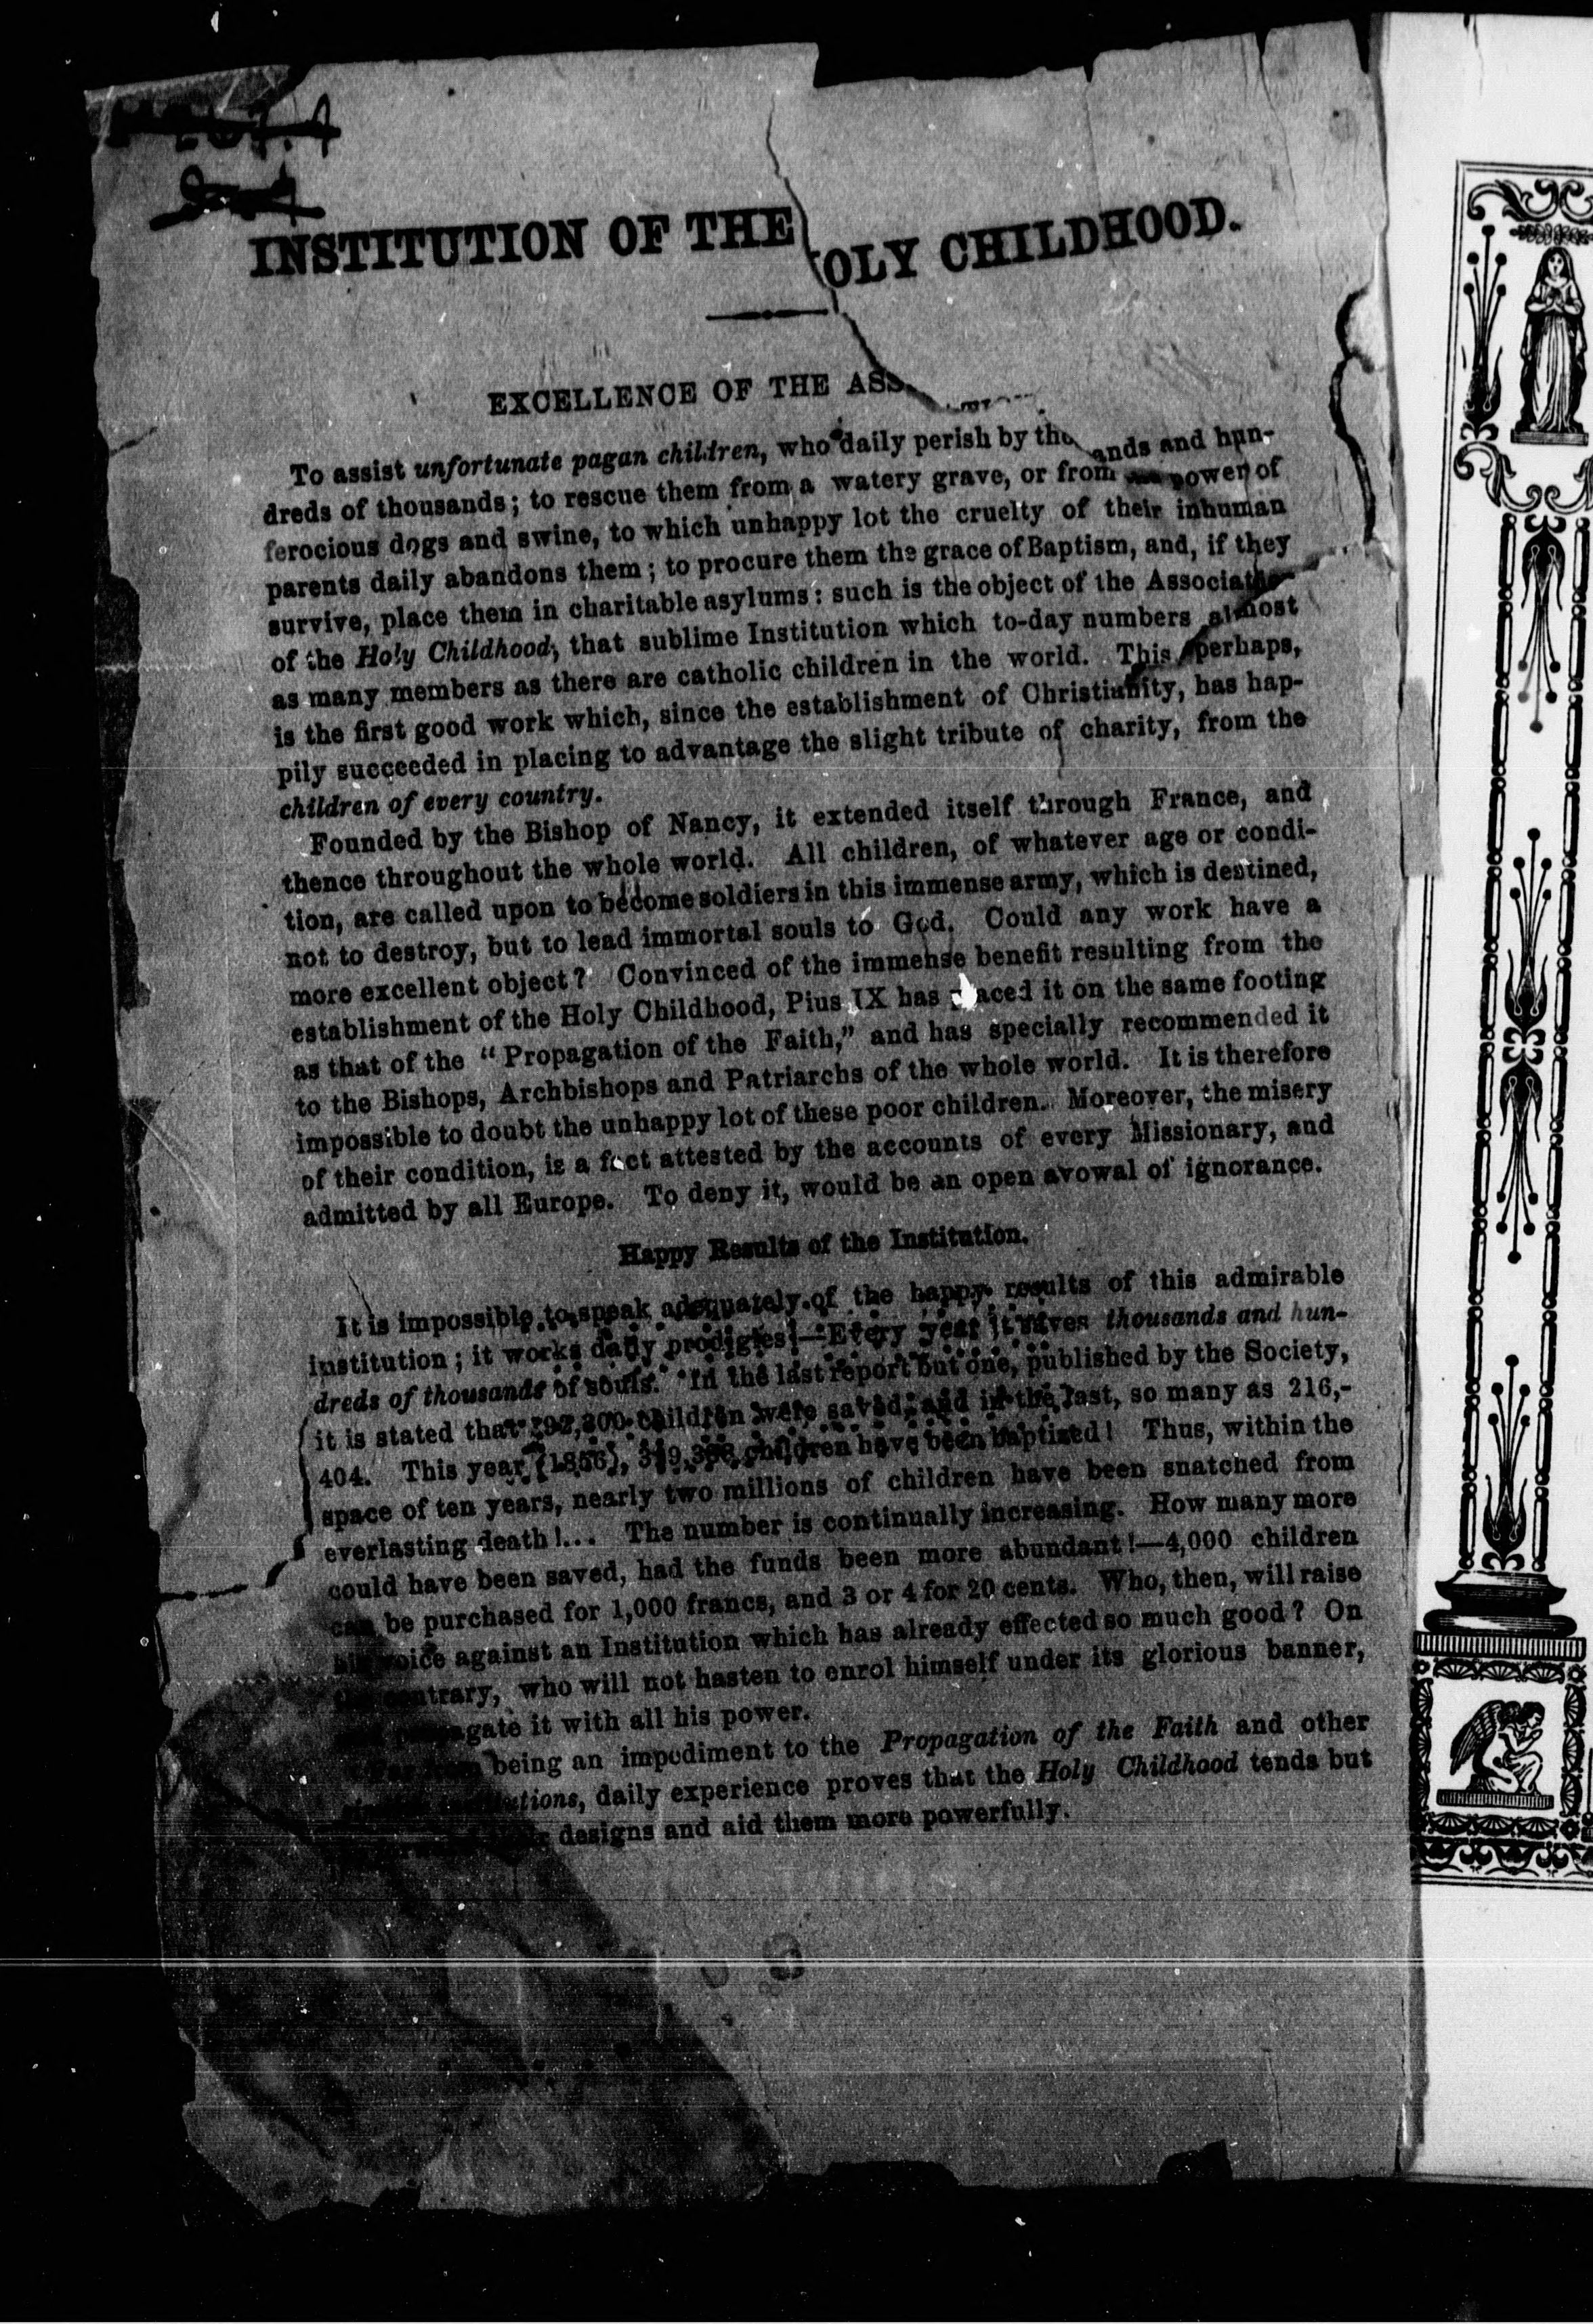 INSTITUTION OF THE OLY CHILDHOOD.
EXCELLENCE OF THE ASS
To assist unfortunate pagan children, who daily perish by tho ands and hun-
dreds of thousands; to rescue them from a watery grave, or from power of
ferocious dogs and swine, to which unhappy lot the cruelty of their inhuman
parents daily abandons them; to procure them the grace of Baptism, and, if they
survive, place them in charitable asylums: such is the object of the Association
of the Holy Childhood, that sublime Institution which to-day numbers almost
as many members as there are catholic children in the world. This perhaps,
is the first good work which, since the establishment of Christianity, has hap-
pily succeeded in placing to advantage the slight tribute of charity, from the
children of every country.
Founded by the Bishop of Nancy, it extended itself through France, and
thence throughout the whole world. All children, of whatever age or condi-
tion, are called upon to become soldiers in this immense army, which is destined,
not to destroy, but to lead immortal souls to God. Could any work have a
more excellent object? Convinced of the immense benefit resulting from the
establishment of the Holy Childhood, Pius IX has placed it on the same footing
as that of the "Propagation of the Faith," and has specially recommended it
to the Bishops, Archbishops and Patriarchs of the whole world. It is therefore
impossible to doubt the unhappy lot of these poor children. Moreover, the misery
of their condition, is a fact attested by the accounts of every Missionary, and
admitted by all Europe. To deny it, would be an open avowal of ignorance.
Happy Results of the Institution.
It is impossible to speak adequately of the happy results of this admirable
institution; it works daily prodigies!—Every year it saves thousands and hun-
dreds of thousands of souls. In the last report but one, published by the Society,
it is stated that children were saved; and in the last, so many as 216,-
404. This year (1856), children have been baptized! Thus, within the
space of ten years, nearly two millions of children have been snatched from
everlasting death!... The number is continually increasing. How many more
could have been saved, had the funds been more abundant!—4,000 children
can be purchased for 1,000 francs, and 3 or 4 for 20 cents. Who, then, will raise
his voice against an Institution which has already effected so much good? On
the contrary, who will not hasten to enrol himself under its glorious banner,
propagate it with all his power.
being an impediment to the Propagation of the Faith and other
tions, daily experience proves that the Holy Childhood tends but
designs and aid them more powerfully.